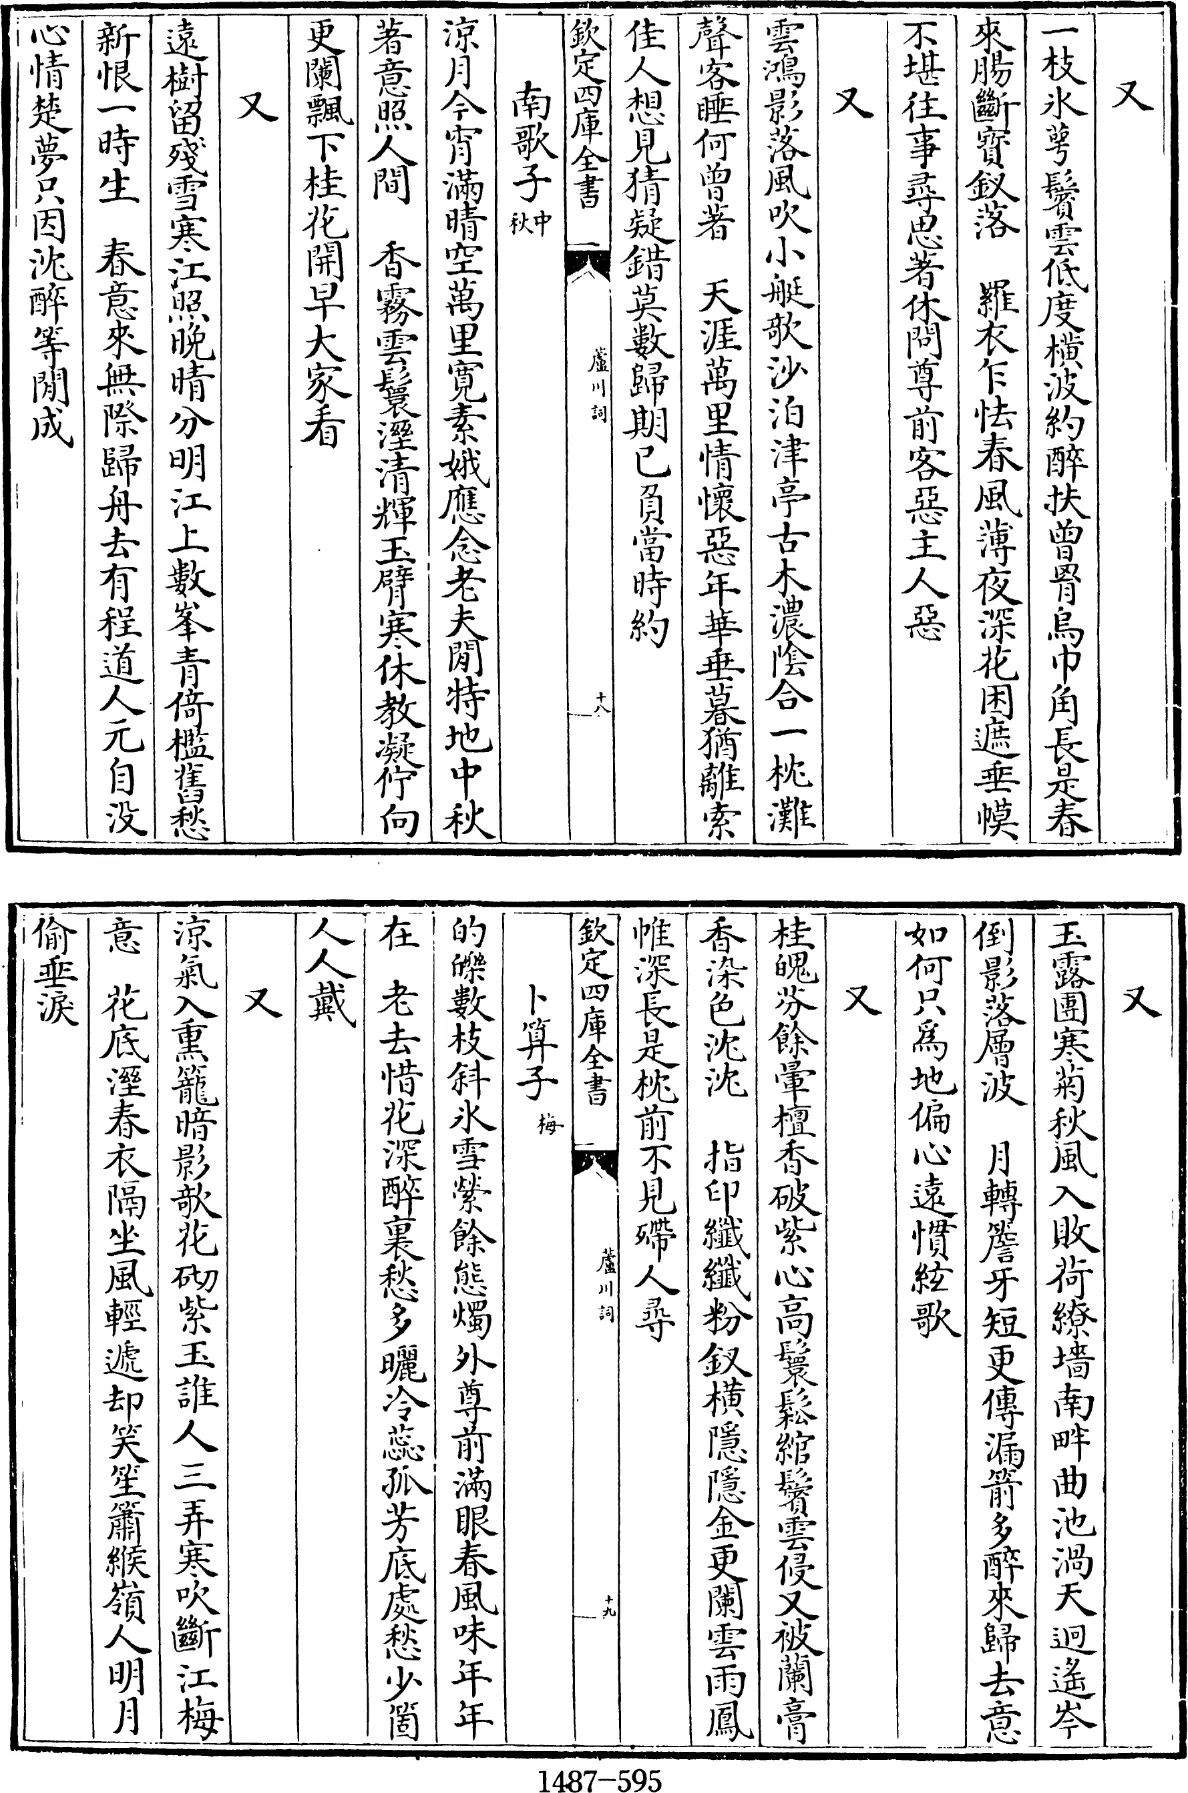 又
一枝氷萼鬢雲低度橫波約醉扶曾罥烏巾角長是春
來腸斷寳釵落　羅衣乍怯春風薄夜深花困遮垂幙
不堪往事尋思著休問尊前客惡主人惡
又
雲鴻影落風吹小艇歌沙泊津亭古木濃隂合一枕灘
聲客睡何曽著　天涯萬里情懷惡年華垂暮猶離索
佳人想見猜疑錯莫數歸期已負當時約
欽定四庫全書
蘆川詞
十八
南歌子中秋
涼月今宵滿晴空萬里寛素娥應念老夫閒特地中秋
著意照人間　香霧雲鬟溼清輝玉臂寒休教凝佇向
更闌飄下桂花開早大家看
又
遠樹留殘雪寒江照晩晴分明江上數峯青倚檻舊愁
新恨一時生　春意來無際歸舟去有程道人元自没
心情楚夢只因沈醉等閒成
又
玉露團寒菊秋風入敗荷繚墻南畔曲池渦天迥遙岑
倒影落層波　月轉簷牙短更傳漏箭多醉來歸去意
如何只為地偏心遠慣絃歌
又
桂魄芬餘暈檀香破紫心高鬟鬆綰鬢雲侵又被蘭膏
香染色沈沈　指印纖纖粉釵橫隱隱金更闌雲雨鳳
帷深長是枕前不見殢人尋
欽定四庫全書
蘆川詞
十九
卜算子梅
的皪數枝斜氷雪縈餘態燭外尊前滿眼春風味年年
在　老去惜花深醉裏愁多曬冷蕊孤芳底處愁少箇
人人戴
又
涼氣入熏籠暗影欹花砌紫玉誰人三弄寒吹斷江梅
意　花底溼春衣隔坐風輕遞却笑笙簫緱嶺人明月
偷垂淚
1487-595